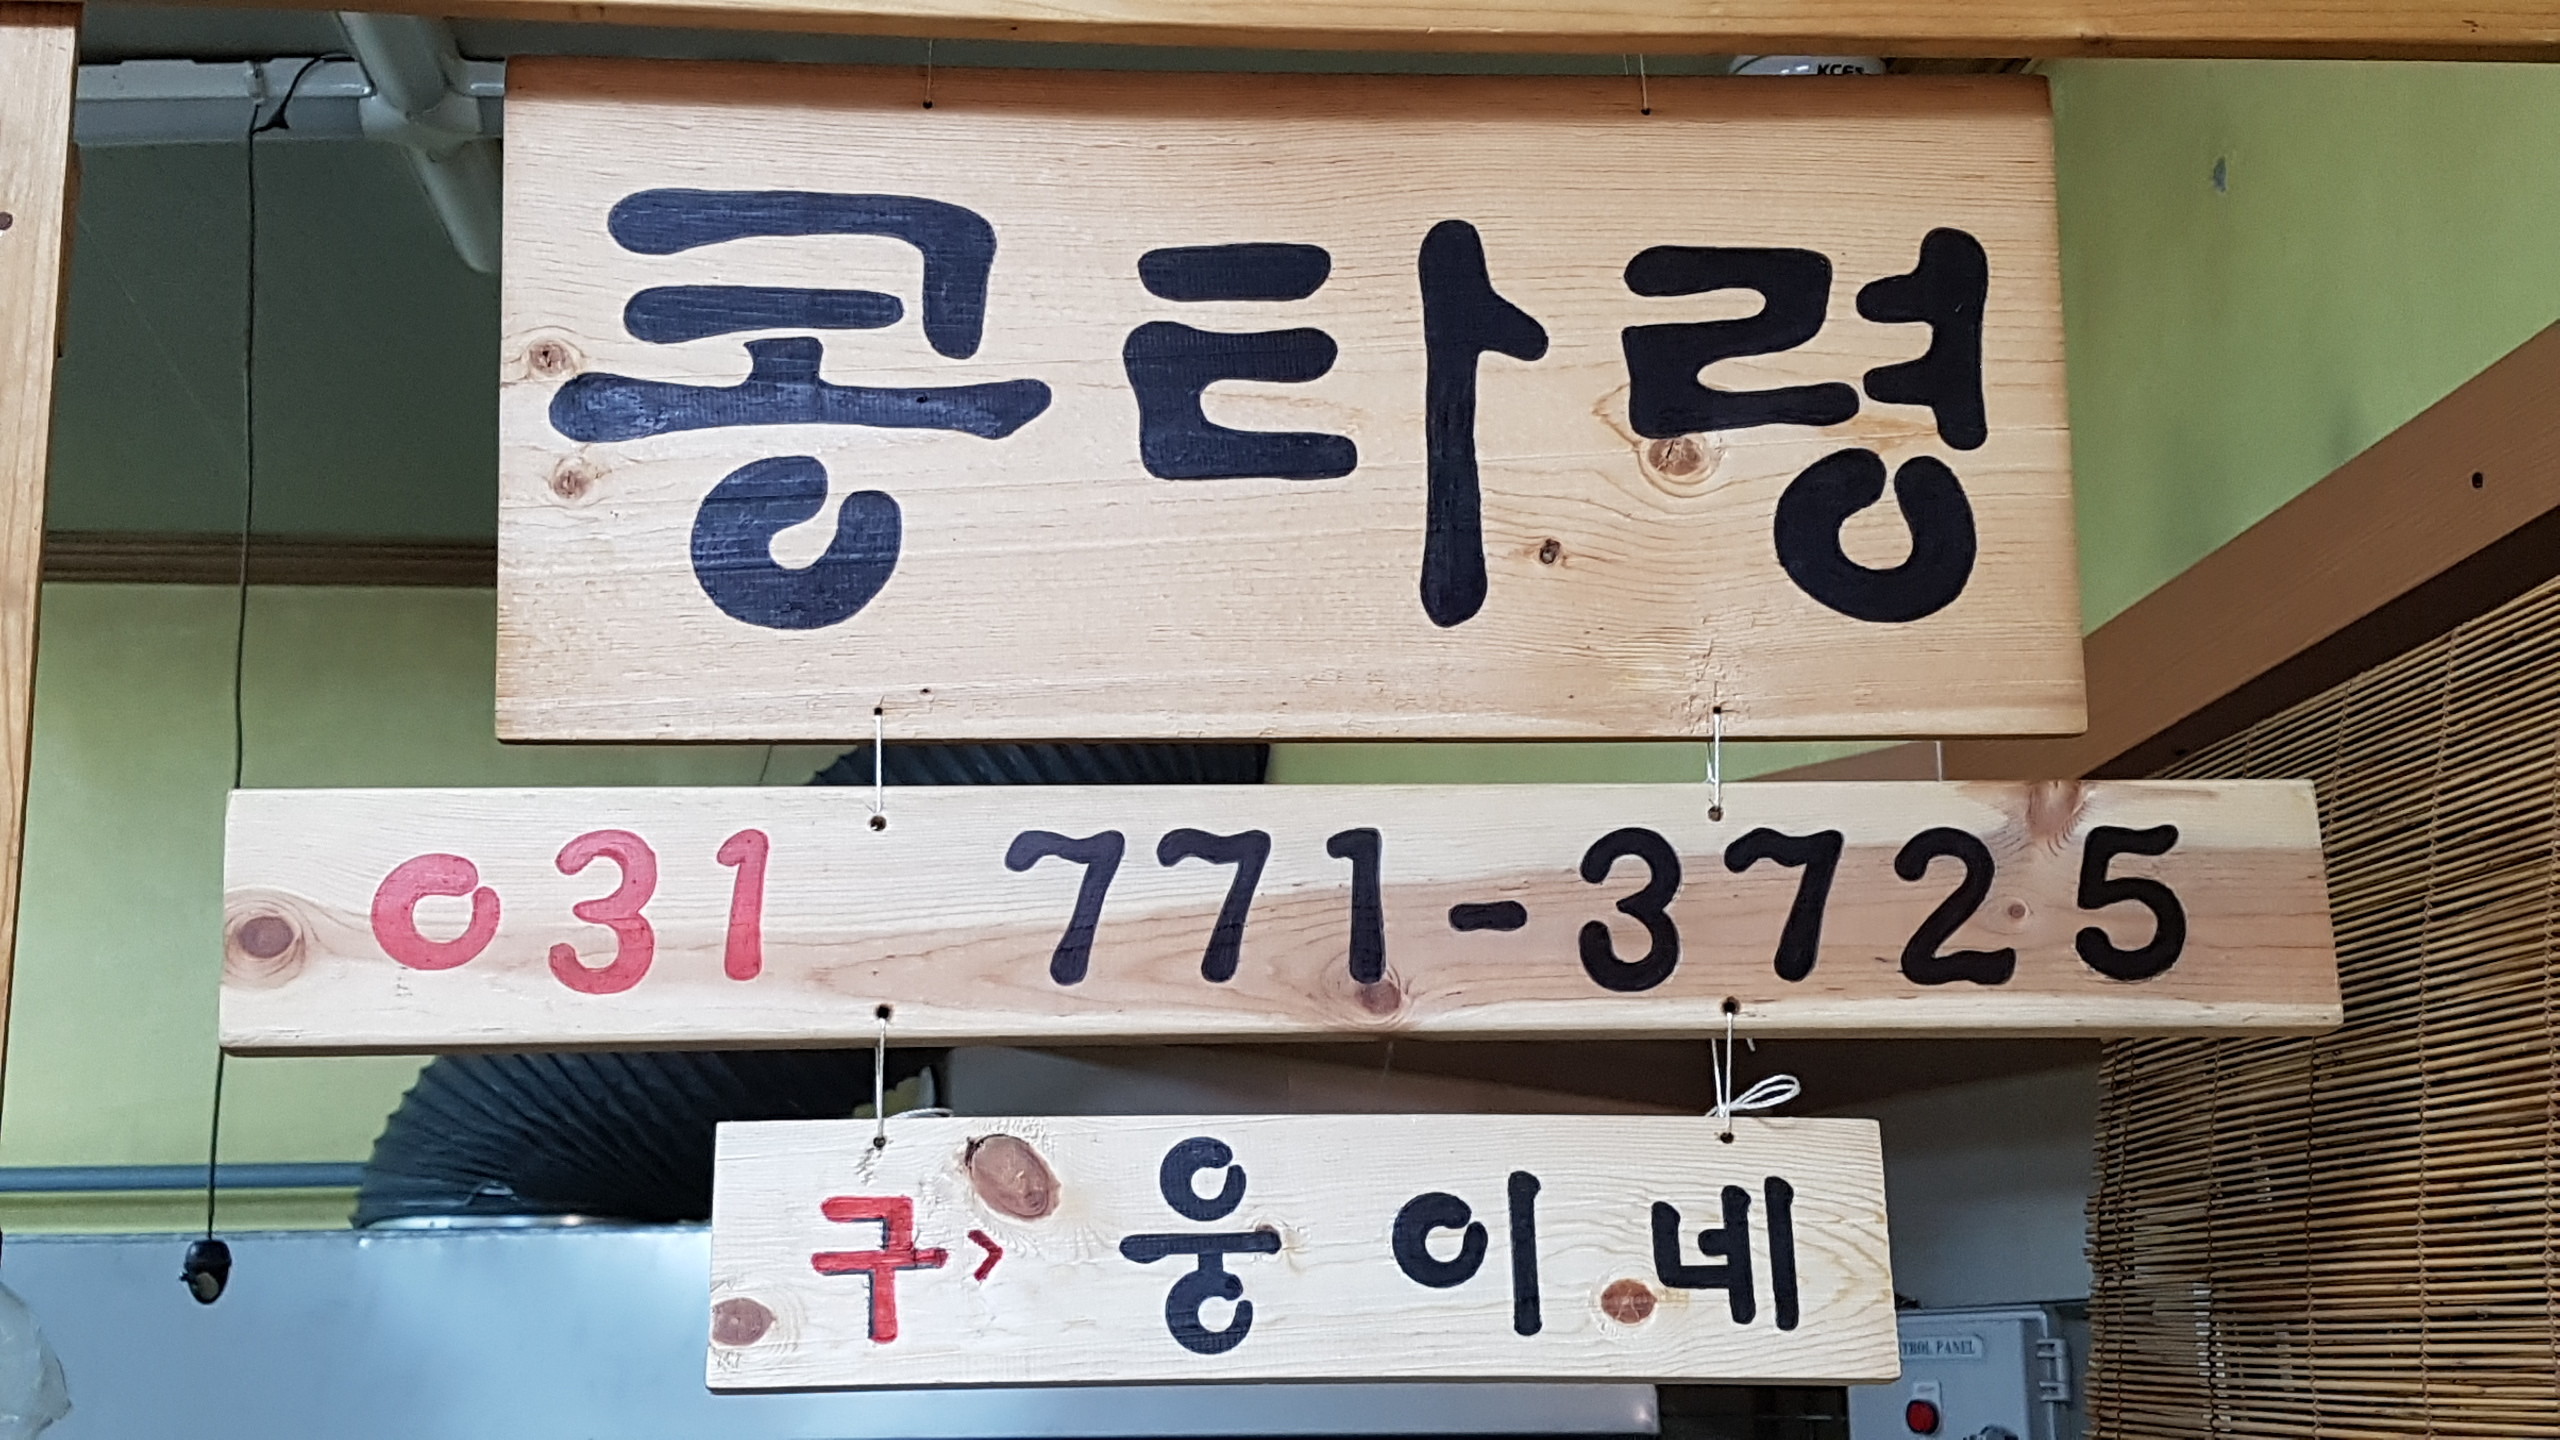 콩타령
031 771-3725
구> 웅이네
TROL PANEL